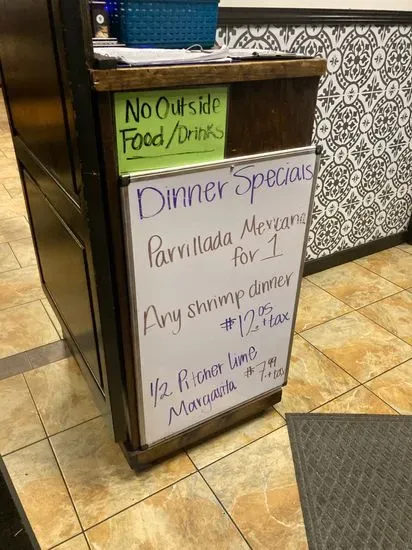 No Outside
Food/Drinks
Dinner Specials
Parrillada Mexicana
for 1
Any shrimp dinner
$12.05
+tax
1/2 Pitcher Lime
Margarita $7.99
+tax